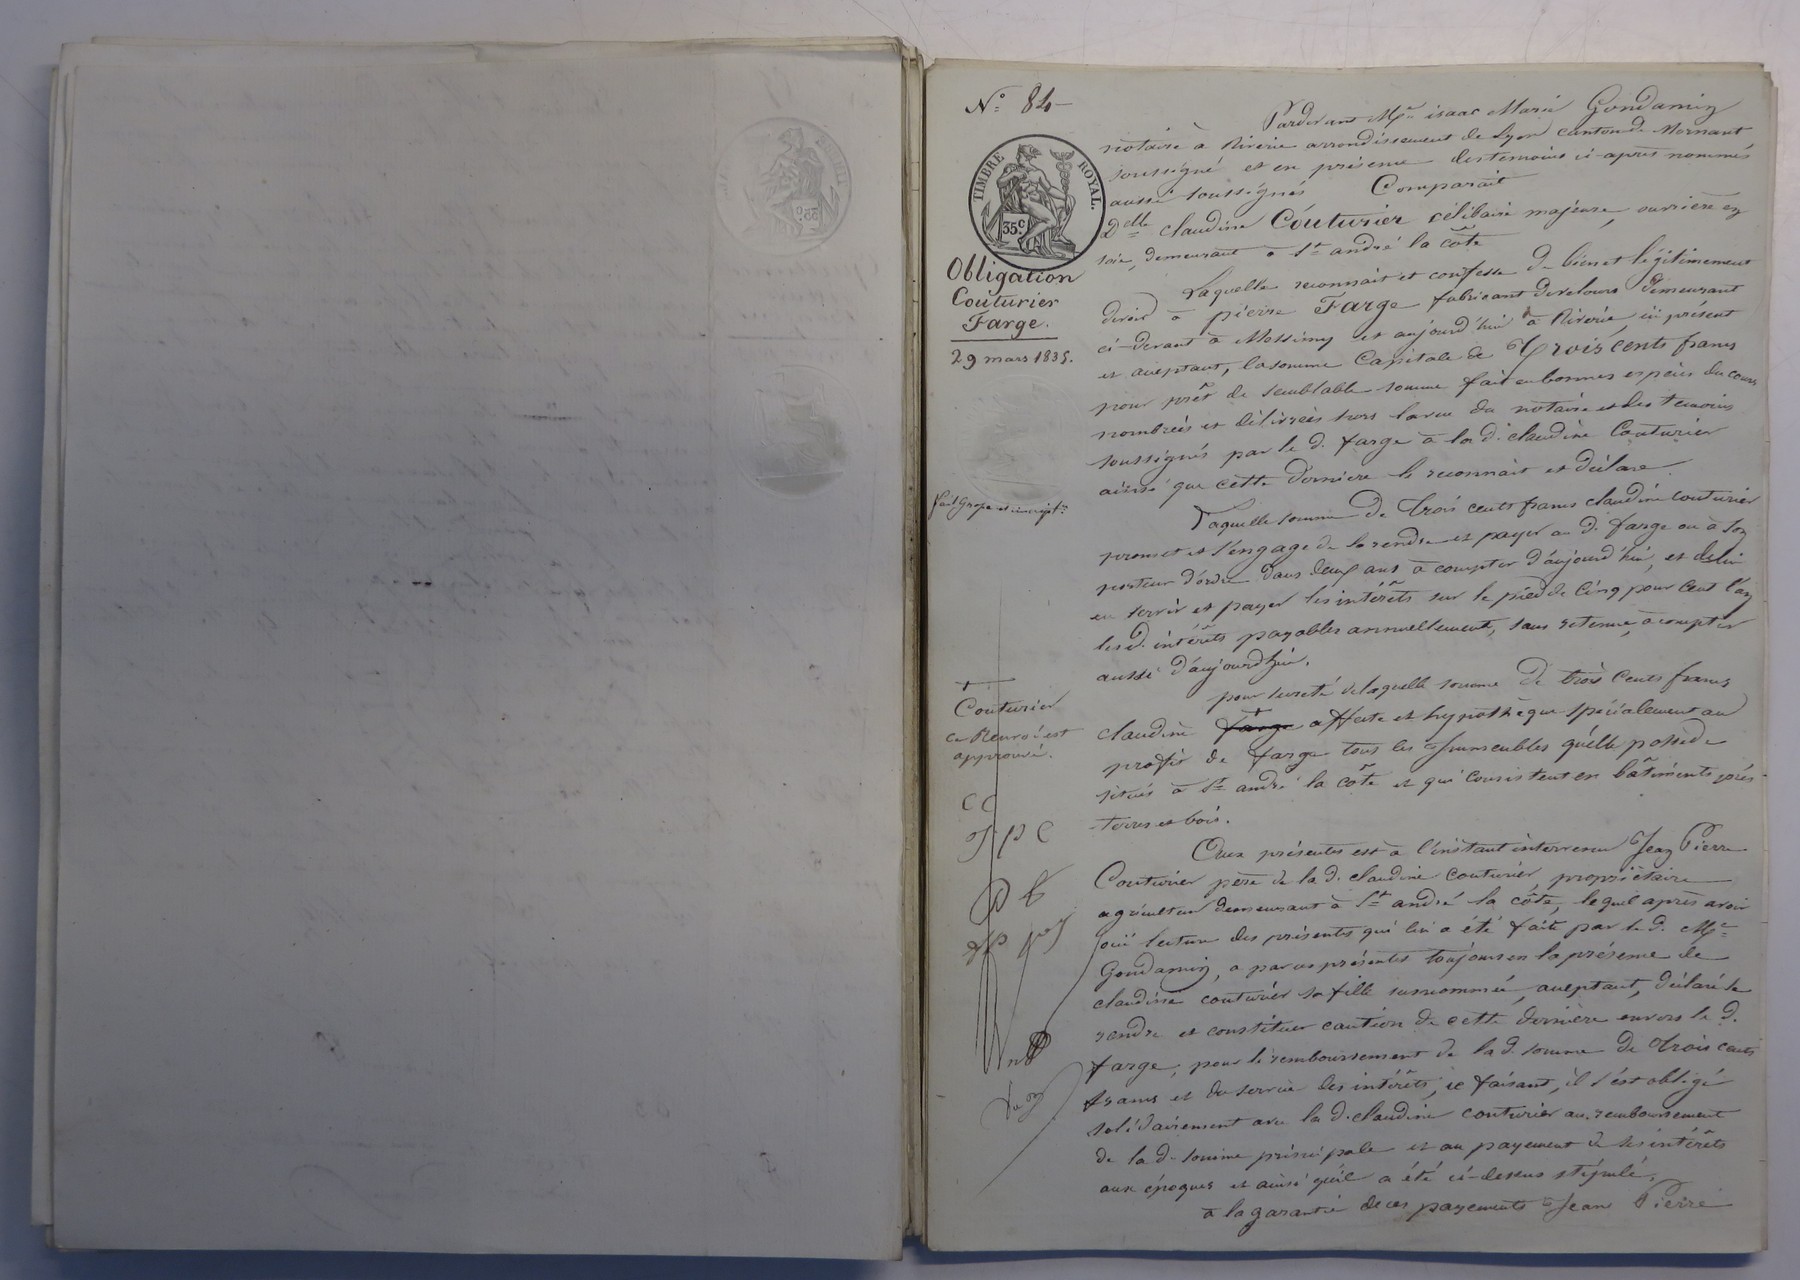 N.° 84
TIMBRE ROYAL.
35c
Obligation
Couturier
Farge.
29 mars 1835.
fait Grosse et inscript.on
+
Couturier
ce Renvoi est
approuvé.
C C
J p C
Pardevant M.e isaac Marie Gondamin
notaire à Riverie arrondissement de Lyon canton de Mornant
soussigné et en présence des temoins ci-après nommés
aussi soussignés Comparait
D.elle claudine Couturier célibaire majeure, ouvrière en
soie, demeurant à s.t andré la côte
Laquelle reconnait et confesse de bien et légitimement
devoir à pierre Farge fabricant de velours demeurant
ci-devant à Messimy et aujourd'hui à Riverie, ici présent
et acceptant, la somme Capitale de Trois cents francs
pour prêt de semblable somme fait en bonnes espèces du cours
nombrées et délivrées hors la vue du notaire et des temoins
soussignés par le d. farge à la d. claudine Couturier
ainsi que cette dernière le reconnait et déclare.
Laquelle somme de trois cents francs claudine couturier
promet et s'engage de la rendre et payer au d. farge ou à son
porteur d'ordre dans deux ans à compter d'aujourd'hui, et de lui
en servir et payer les intérêts sur le pied de Cinq pour Cent l'an
les d. intérêts payables annuellement, sans retenue, à compter
aussi d'aujourd'hui.
pour sureté de laquelle somme de trois cents francs
claudine farge + affecte et hypothèque spécialement au
profit de farge tous les Immeubles qu'elle possède
situés à s.t andré la côte et qui consistent en bâtiments près
terres et bois.
Aux présentes est à l'instant intervenu Jean Pierre
Couturier père de la d. claudine couturier, propriétaire
agriculteur demeurant à s.t andré la côte, lequel après avoir
ouï lecture des présentes qui lui a été faite par le d. M.e
Gondamin, a par ces présentes toujours en la présence de
claudine couturier sa fille susnommée, acceptant, déclaré se
rendre et constituer caution de cette dernière envers le d.
farge, pour le remboursement de la d. somme de trois cents
francs et du service des intérêts, ce faisant, il s'est obligé
solidairement avec la d. claudine couturier au remboursement
de la d. somme principale et au payement de ses intérêts
aux époques et ainsi qu'il a été ci-dessus stipulé.
à la garantie de ces payements Jean Pierre